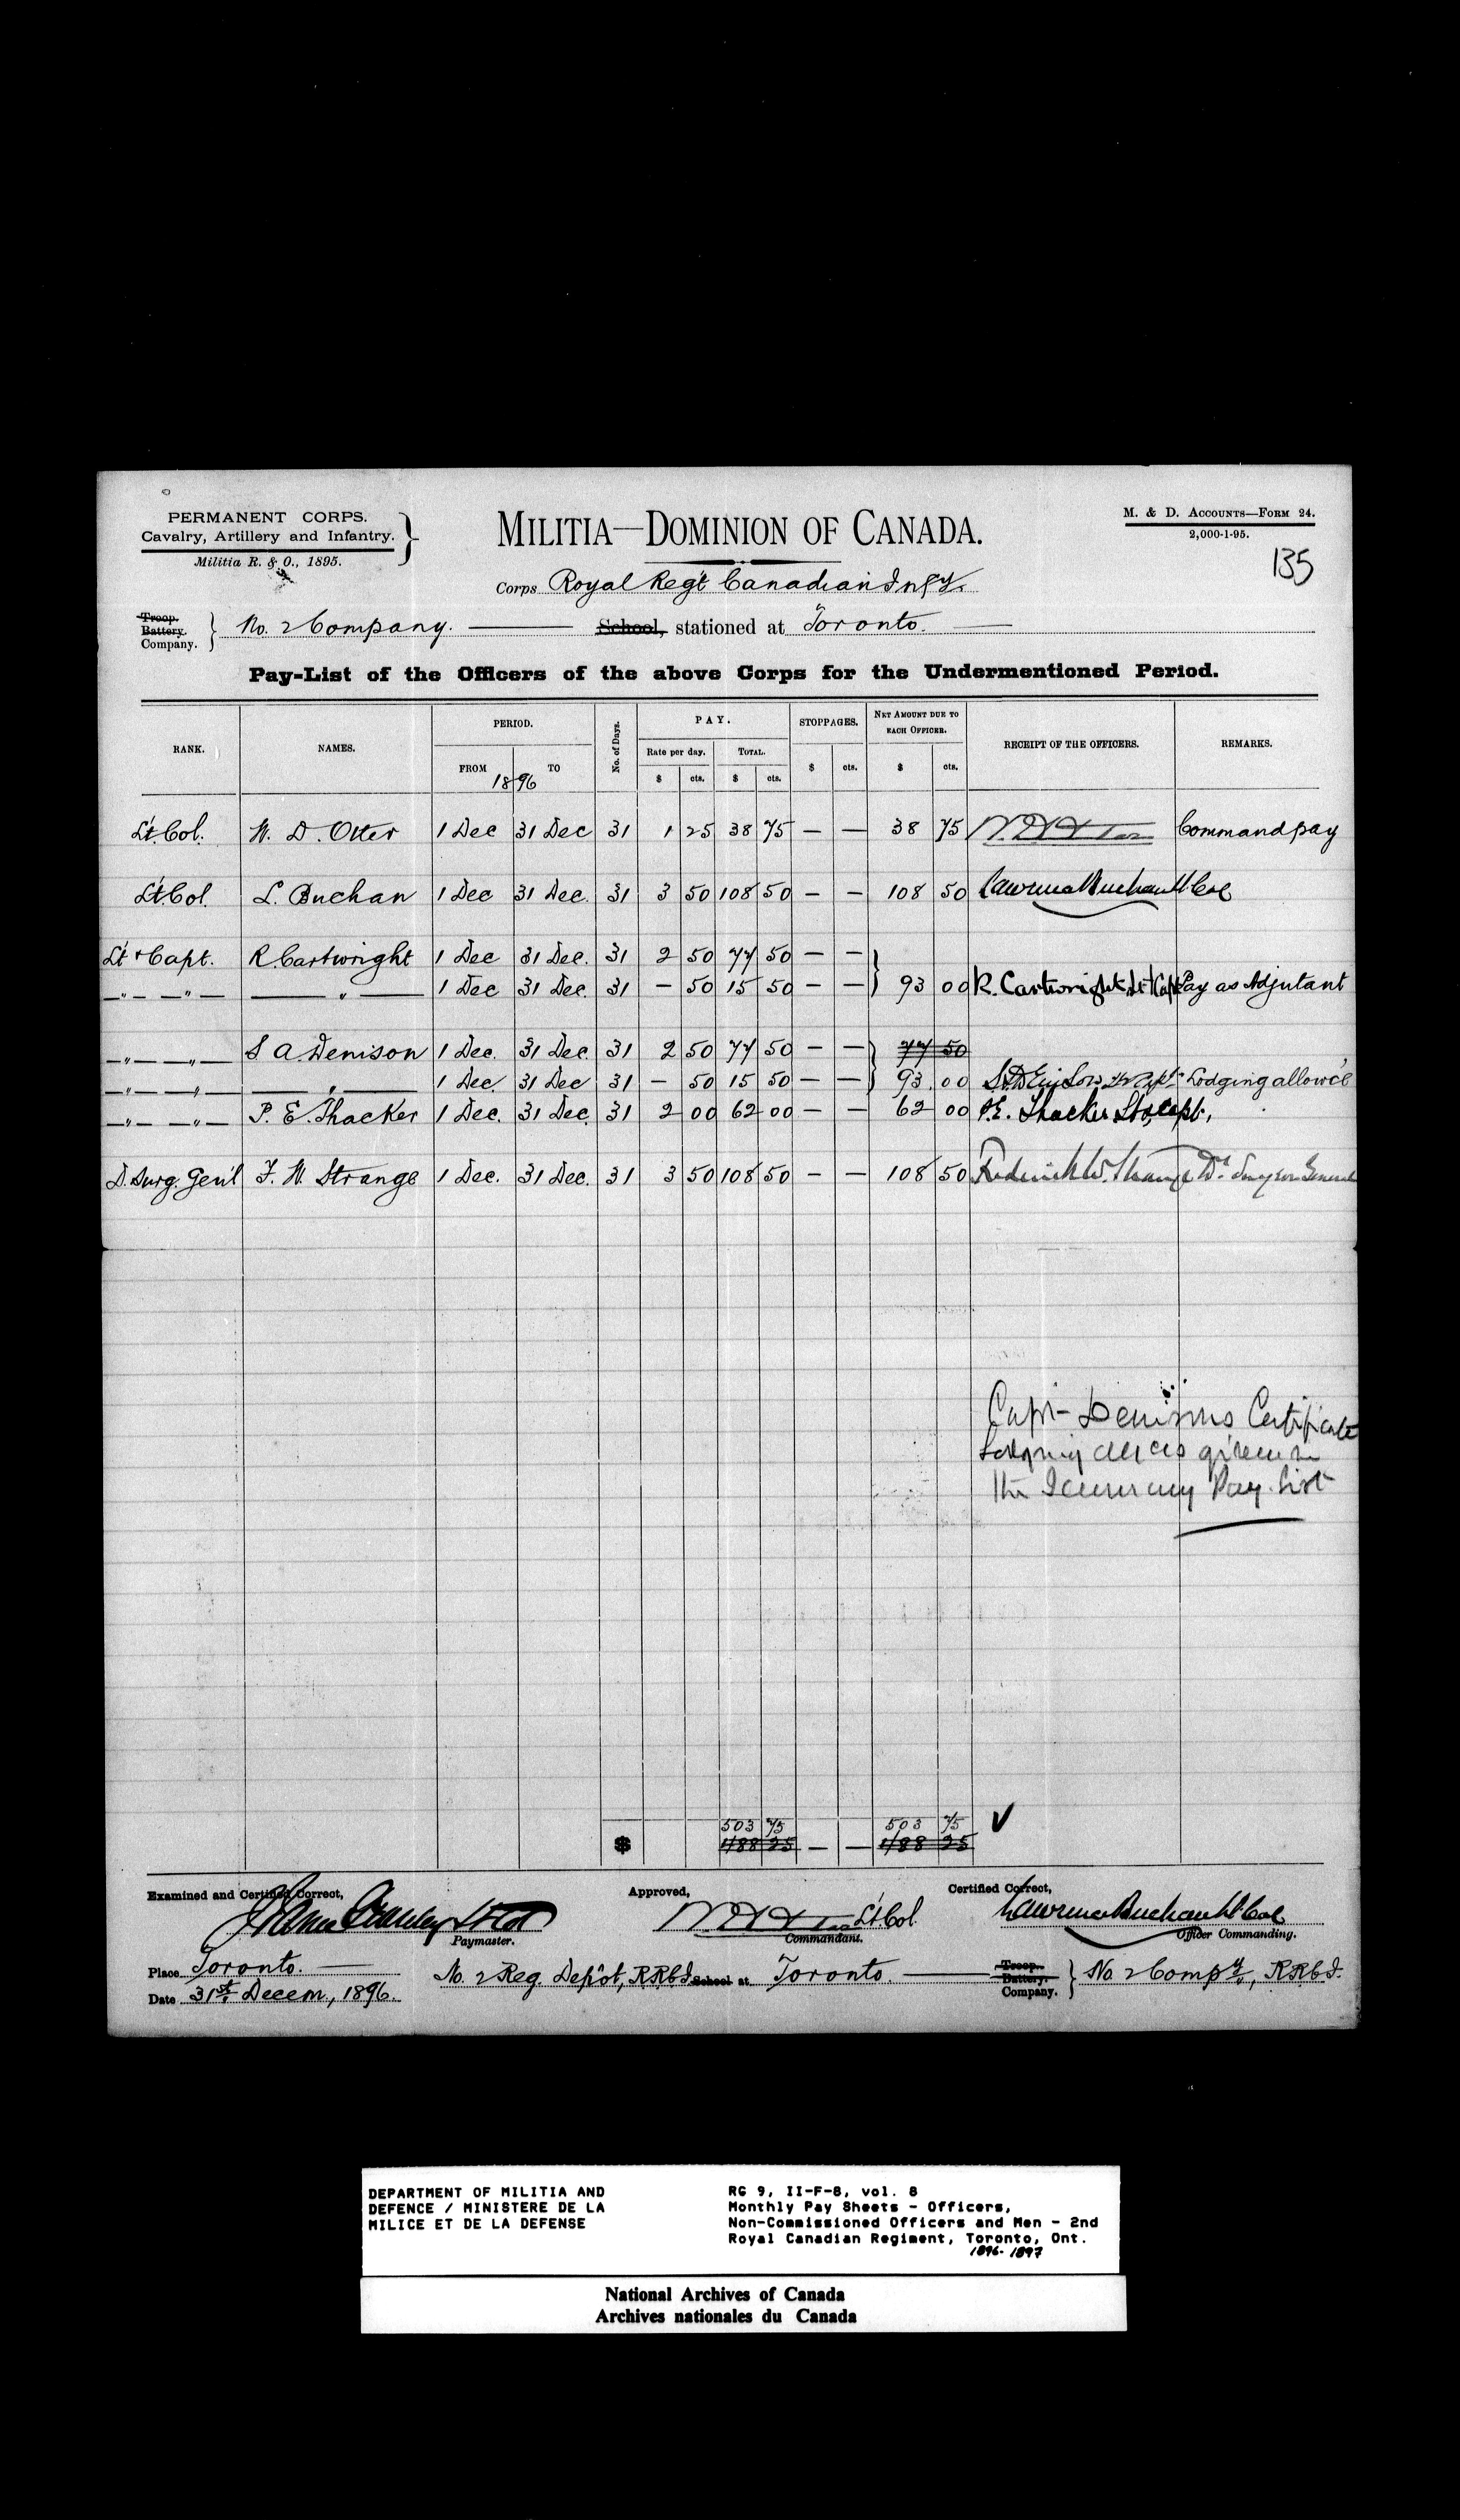 PERMANENT CORPS.
Cavalry, Artillery and Infantry.
Militia R. & O., 1895.
MILITIA—DOMINION OF CANADA.
M. & D. ACCOUNTS—FORM 24.
2,000-1-95.
135
Corps Royal Reg't Canadian Inf'y.
Troop.
Battery.
Company.
No. 2 Company. School, stationed at Toronto.
Pay-List of the Officers of the above Corps for the Undermentioned Period.
RANK. NAMES. PERIOD. FROM TO No. of Days. PAY. Rate per day. $ cts. TOTAL. $ cts. STOPPAGES. $ cts. NET AMOUNT DUE TO EACH OFFICER. $ cts. RECEIPT OF THE OFFICERS. REMARKS.
1896
Lt. Col. W. D. Otter 1 Dec 31 Dec 31 1 25 38 75 — — 38 75 Command pay
Lt. Col. L. Buchan 1 Dec 31 Dec. 31 3 50 108 50 — — 108 50 Lawrence Buchan Lt Col
Lt + Capt. R. Cartwright 1 Dec 31 Dec. 31 2 50 77 50 — —
—"— —"— — " — 1 Dec 31 Dec. 31 — 50 15 50 — — 93 00 R. Cartwright Lt + Capt Pay as Adjutant
—"— —"— S A. Denison 1 Dec. 31 Dec. 31 2 50 77 50 — — 77 50
—"— —"— — " — 1 Dec 31 Dec 31 — 50 15 50 — — 93 00 Lodging allow'ce
—"— —"— P. E. Thacker 1 Dec. 31 Dec. 31 2 00 62 00 — — 62 00 P.E. Thacker Lt & Capt.
D. Surg. Gen'l F. W. Strange 1 Dec. 31 Dec. 31 3 50 108 50 — — 108 50 Frederick W. Strange Dy. Surgeon General
Capt Denisons Certificate
Lodging given in
the Pay List
503 75 503 75
$ 488 25 — — 488 25
Examined and Certified Correct,
Paymaster.
Approved,
Lt Col
Commandant.
Certified Correct,
Lawrence Buchan Lt Col
Officer Commanding.
Place Toronto.
Date 31st Decem., 1896.
No. 2 Reg. Depôt, RRCI School at Toronto.
Troop.
Battery.
Company.
No. 2 Comp'y, RRCI.
DEPARTMENT OF MILITIA AND
DEFENCE / MINISTERE DE LA
MILICE ET DE LA DEFENSE
RG 9, II-F-8, vol. 8
Monthly Pay Sheets - Officers,
Non-Commissioned Officers and Men - 2nd
Royal Canadian Regiment, Toronto, Ont.
1896-1897
National Archives of Canada
Archives nationales du Canada